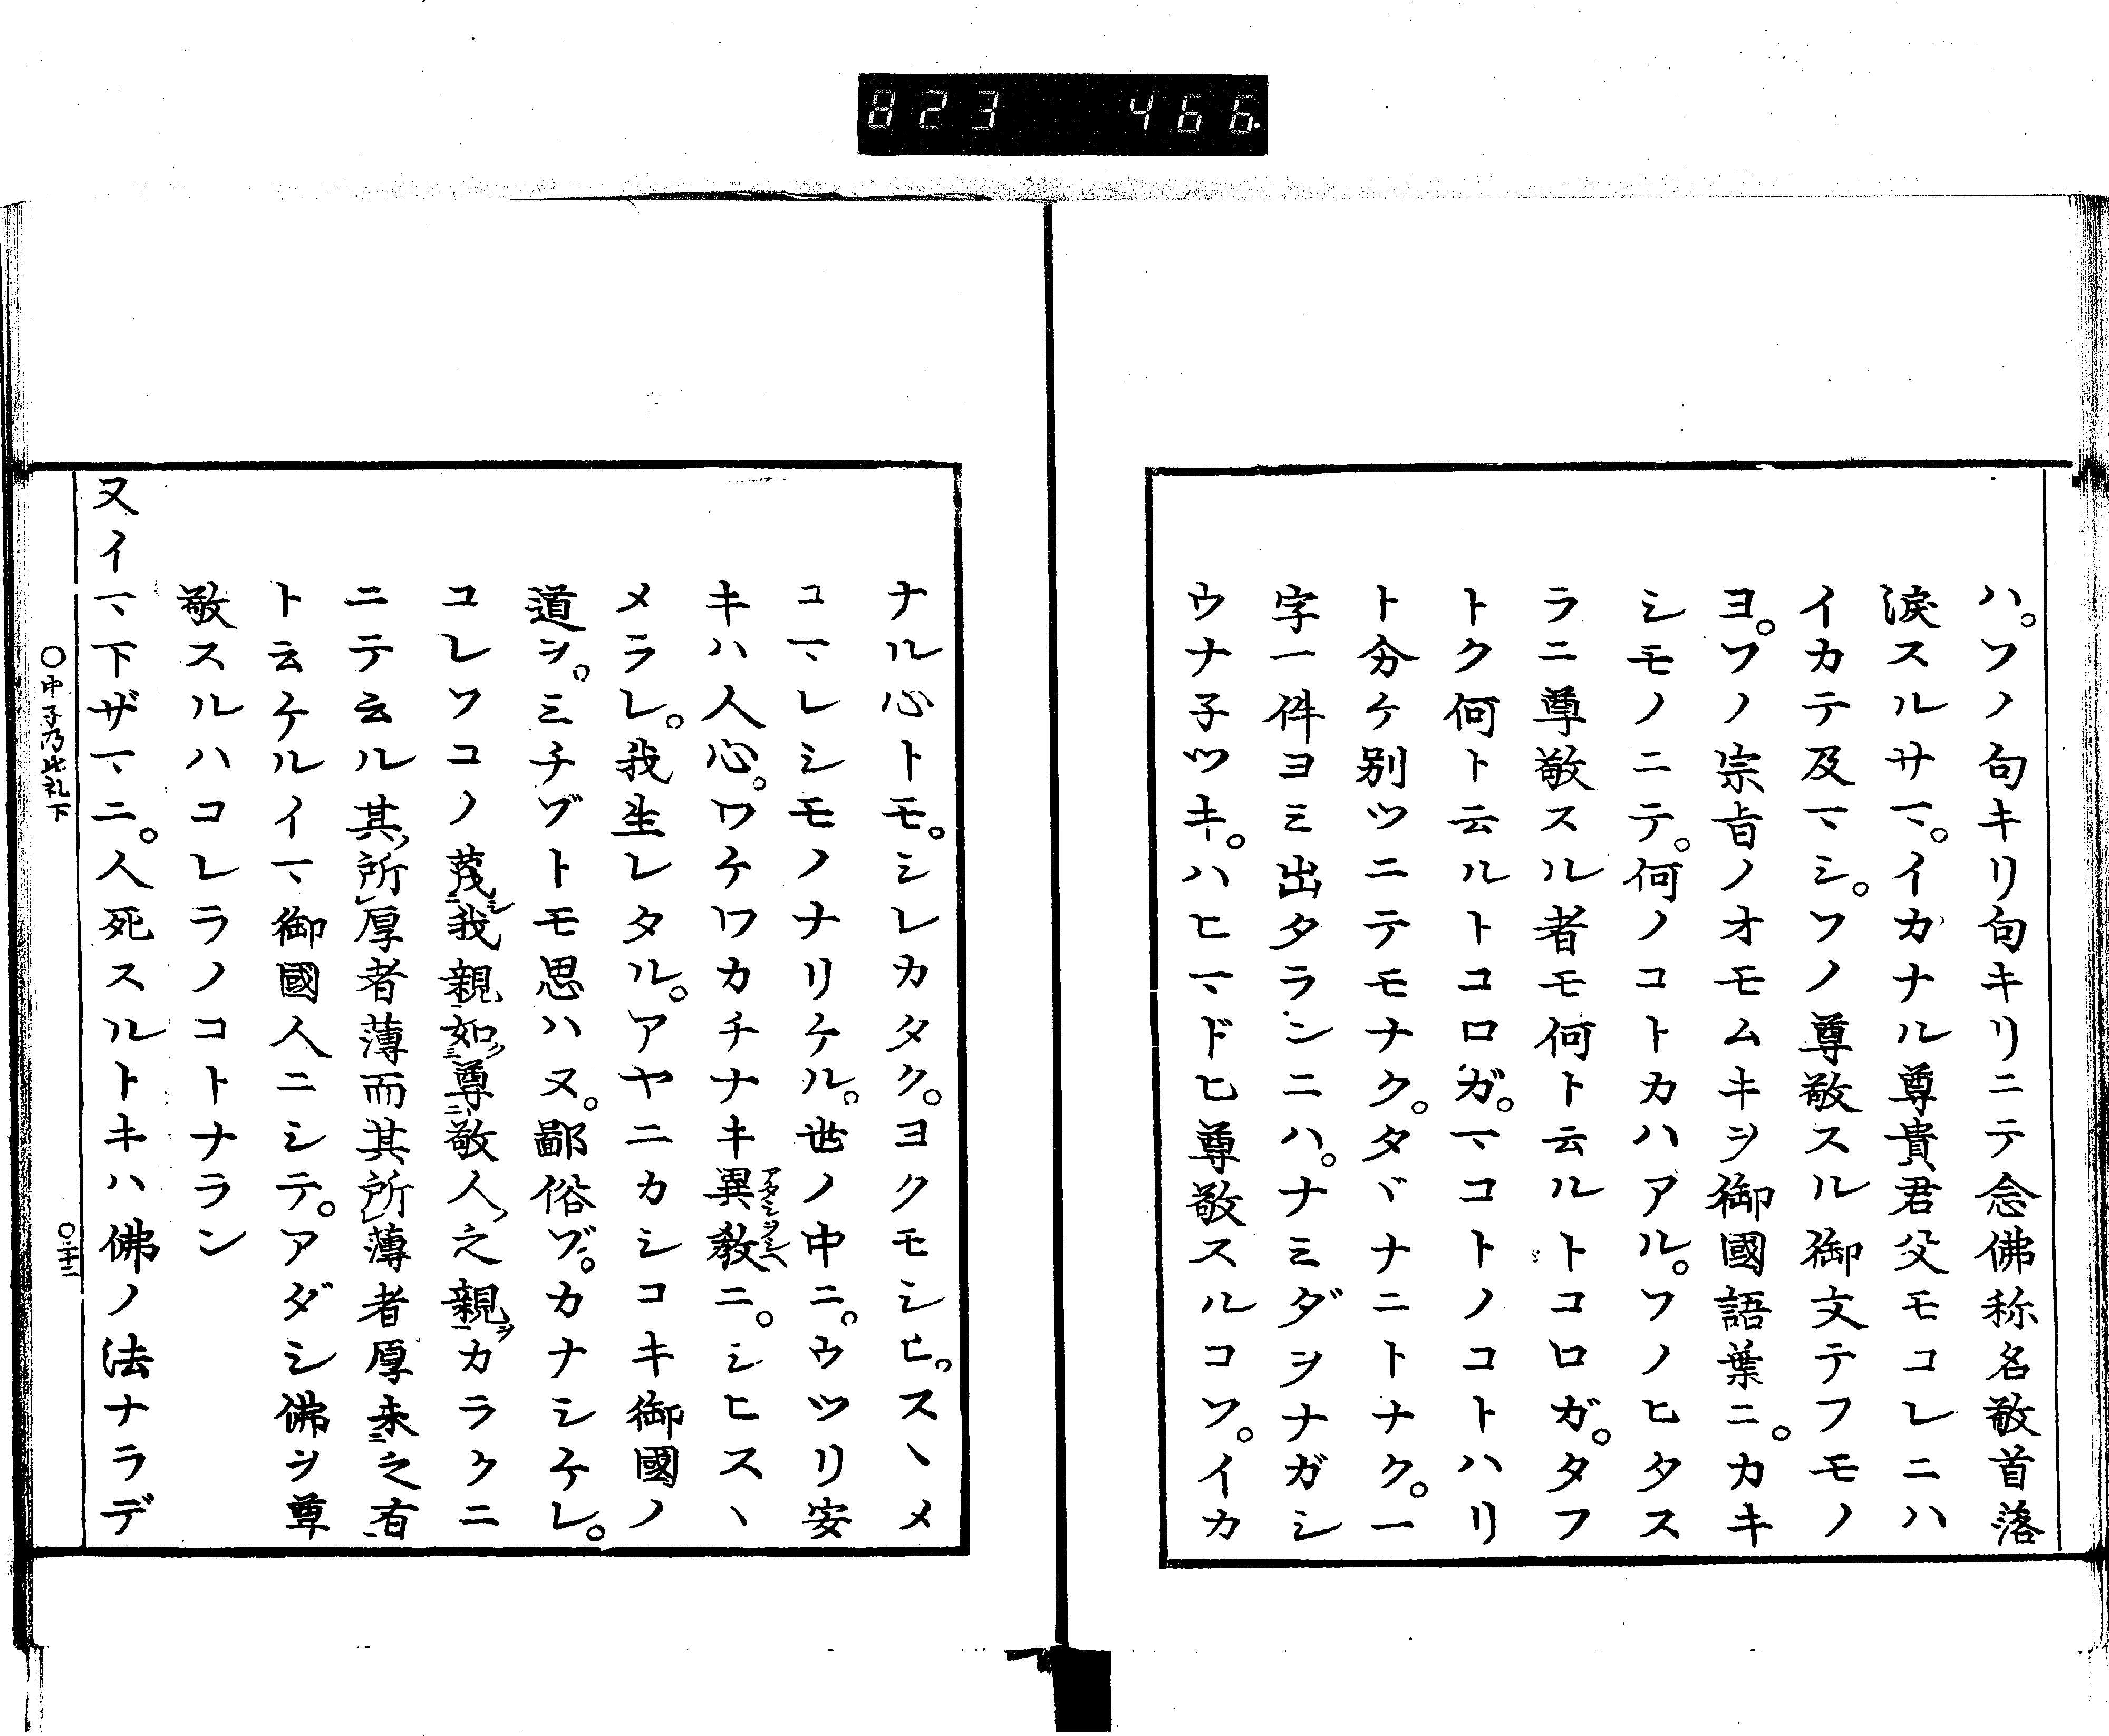 823 466
ハ。ソノ句キリ句キリニテ念佛称名敬首落
涙スルサマ。イカナル尊貴君父モコレニハ
イカテ及マシ。ソノ尊敬スル御文テフモノ
ヨ。ソノ宗旨ノオモムキヲ御國語葉ニ。カキ
シモノニテ。何ノコトカハアル。ソノヒタス
ラニ尊敬スル者モ何ト云ルトコロガ。タフ
トク何ト云ルトコロガ。マコトノコトハリ
ト分ケ別ツニテモナク。タヾナニトナク。一
字一件ヨミ出タランニハ。ナミダヲナガシ
ウナ子ツキ。ハヒマドヒ尊敬スルコソ。イカ
ナル心トモ。シレカタク。ヨクモシヒ。スヽメ
コマレシモノナリケル。世ノ中ニ。ウツリ安
キハ人心。ワケワカチナキ異教ニ。シヒスヽ
メラレ。我生レタル。アヤニカシコキ御國ノ
道ヲ。ミチゾトモ思ハヌ。鄙俗ゾ。カナシケレ。
コレソコノ蔑シ我親如ク尊敬人之親ヲカラクニ
ニテ云ル其所厚者薄而其所薄者厚未之有
ト云ケルイマ御國人ニシテ。アダシ佛ヲ尊
敬スルハコレラノコトナラン
又イマ下ザマニ。人死スルトキハ佛ノ法ナラデ
〇中子乃比礼下 〇二十二